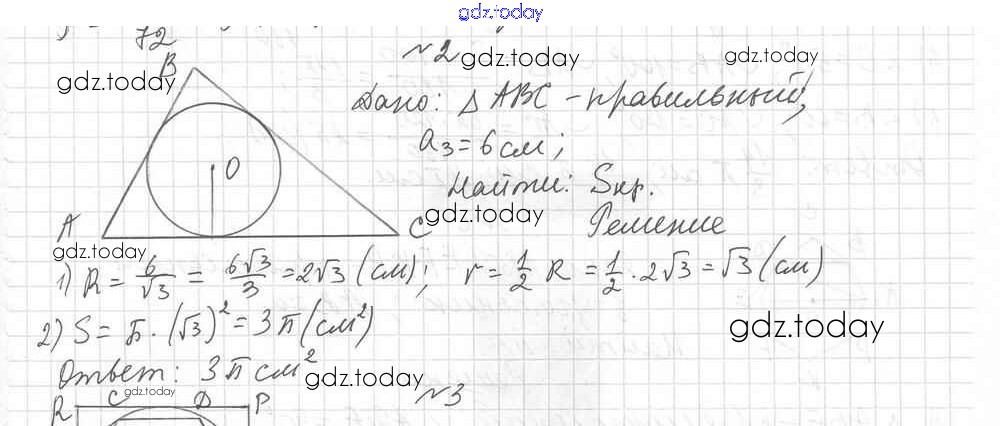 gdz.today
72
№2
gdz.today
gdz.today
B
gdz.today
Дано: △ABC - правильный,
a₃ = 6 см;
O
Найти: Sкр.
gdz.today
A
C
Решение
gdz.today
1) R = 6/√3 = 6√3/3 = 2√3 (см); r = 1/2 R = 1/2 · 2√3 = √3 (см)
2) S = π · (√3)² = 3π (см²)
gdz.today
Ответ: 3π см²
gdz.today
gdz.today
№3
R C D P